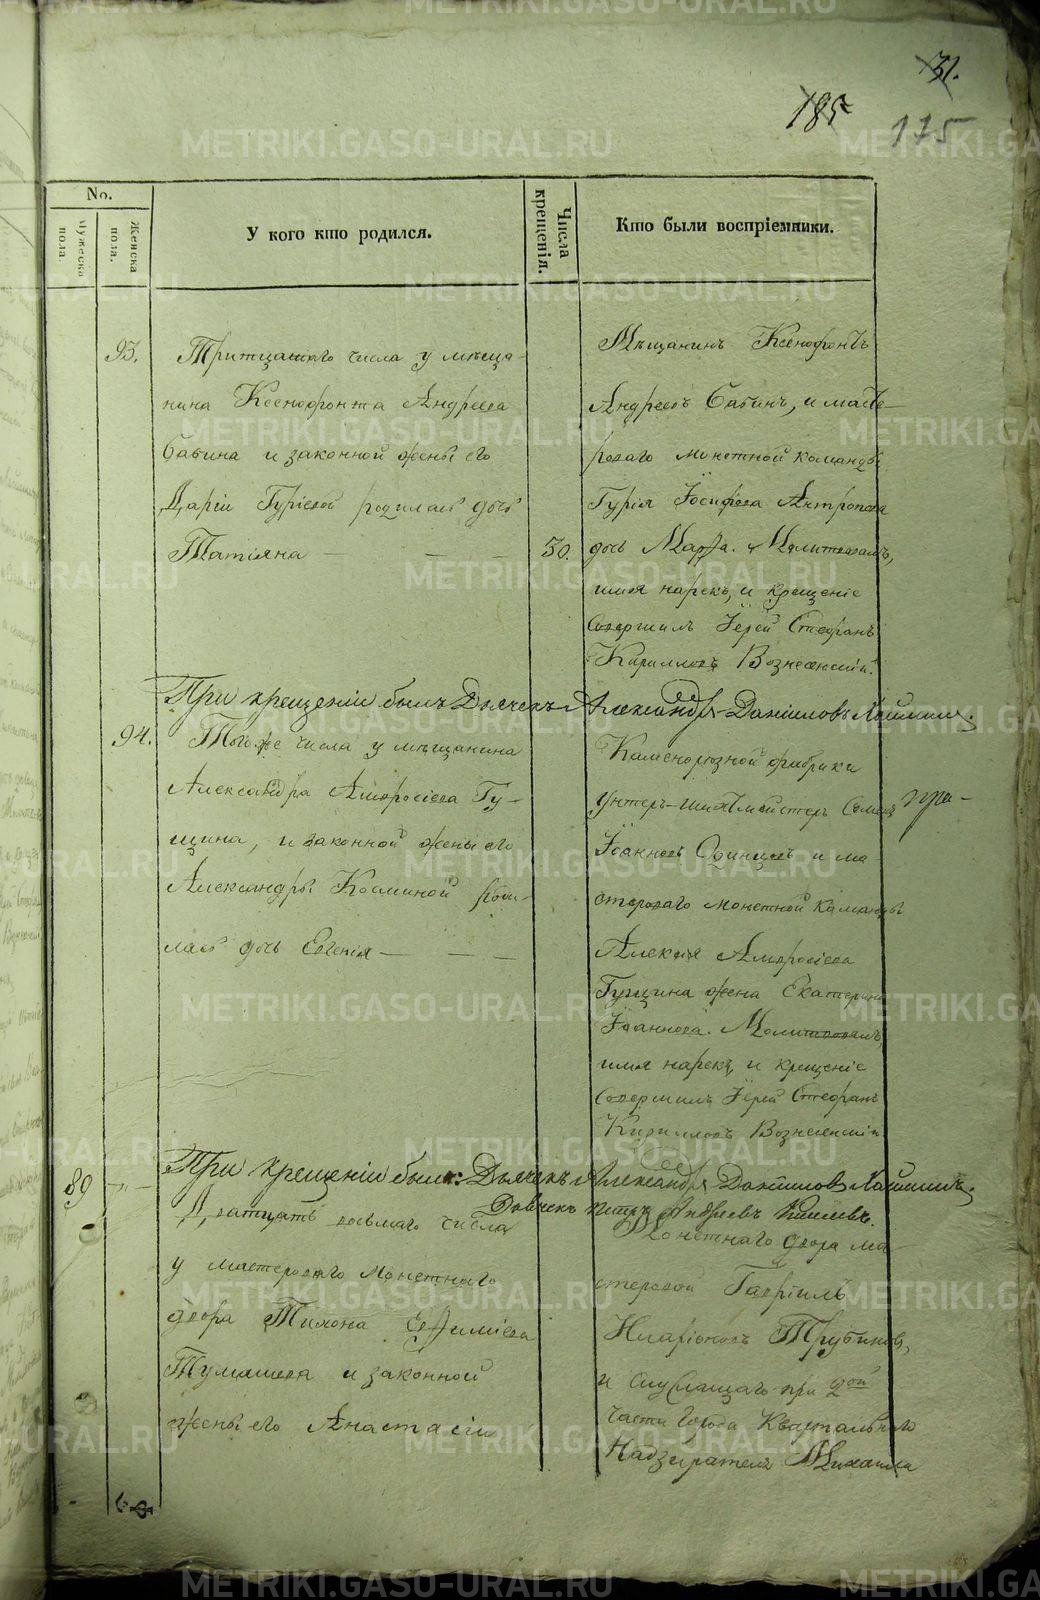 31.
185
175
No.
Мужеска пола.
Женска пола.
У кого кто родился.
Числа крещенія.
Кто были воспріемники.
93.
Тритцатаго числа у мѣща-
нина Ксенофонта Андреева
Сабина и законной жены его
Даріи Гуріевой родилась дочь
Татіяна — — —
30.
Мѣщанинъ Ксенофонтъ
Андреевъ Сабинъ, и масте-
роваго монетной команды
Гурія Іосифова Антропова
дочь Марѳа. Молитвовалъ,
имя нарекъ, и крещеніе
совершилъ Іерей Стефанъ
Кирилловъ Вознесенскій.
При крещеніи былъ Дьячекъ Александръ Даніиловъ
94.
Того же числа у мѣщанина
Александра Амвросіева Гу-
щина, и законной жены его
Александры Косминой роди-
лась дочь Евгенія — — —
Каменорезной фабрики
унтеръ-шихтмейстеръ Семенъ
Іоанновъ Одинцовъ и ма-
стероваго монетной команды
Алексія Амвросіева
Гущина жена Екатерина
Іоаннова. Молитвовалъ,
имя нарекъ, и крещеніе
совершилъ Іерей Стефанъ
Кирилловъ Вознесенскій
При крещеніи былъ: Дьячекъ Александръ Даніиловъ
Петръ Андреевъ
89
Дватцать восьмаго числа
у мастероваго монетнаго
двора Тихона Евѳиміева
Тумашева и законной
жены его Анастасіи
Монетнаго двора ма-
стеровой Гавріилъ
Иларіоновъ Трубиновъ,
и служащаго при 2ой
части города Квартальнаго
Надзирателя Михаила
METRIKI.GASO-URAL.RU